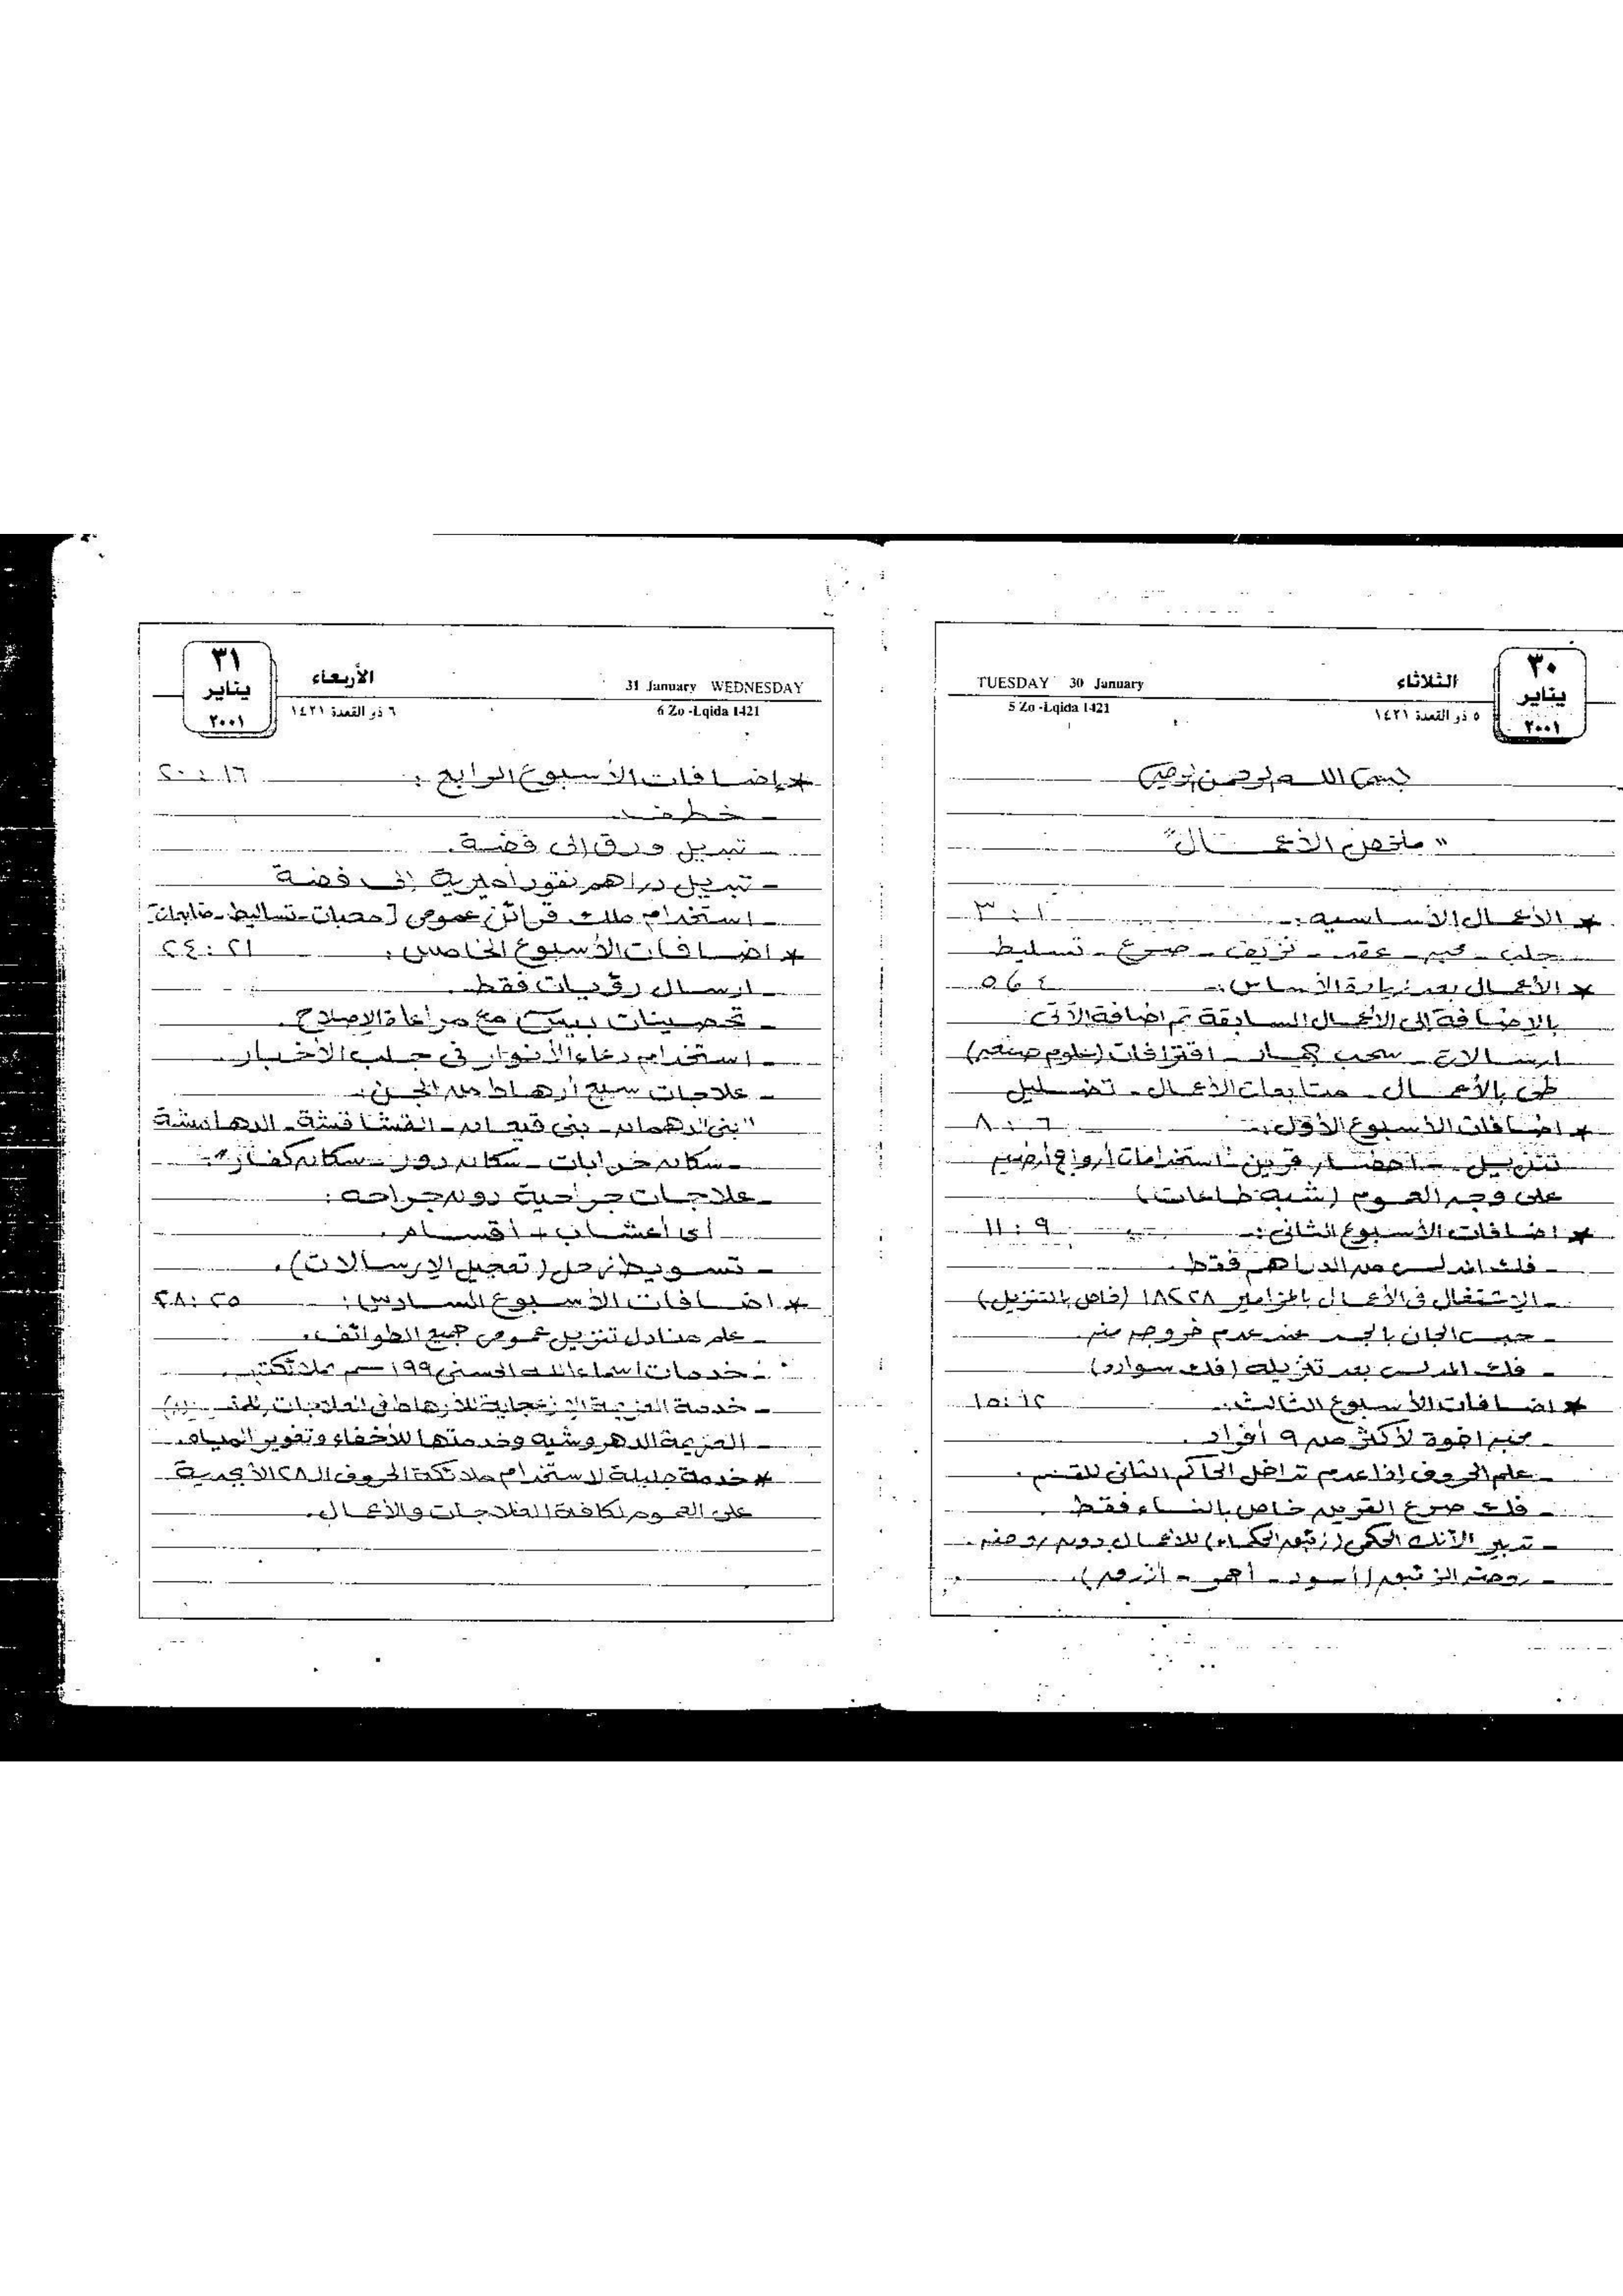 ٣٠
يناير
٢٠٠١
الثلاثاء
٥ ذو القعدة ١٤٢١
TUESDAY 30 January
5 Zo -Lqida 1421
بسم الله الرحمن الرحيم
" ملخص الأعمال "
* الأعمال الأساسية :- ٣:١
جلب - محبة - عقد - نزيف - صرع - تسليط
* الأعمال بعد زيادة الأساس :- ٥،٤
بالإضافة إلى الأعمال السابقة تم اضافة الآتى
ارسالات - سحب - اقترافات (علوم
طى بالأعمال - متابعات الأعمال - تضليل
* اضافات الأسبوع الأول :- ٨:٦
تنزيل - احضار قرين - استخدامات أرواح أرضيه
على وجه العموم (شبه طاعات)
* اضافات الأسبوع الثانى :- ١١:٩
- فك من الدراهم فقط .
- الاشتغال فى الأعمال بالمزامير (خاص بالتنزيل)
- حبس الجان بالجسد عند عدم خروجه منه .
- فك بعد تنزيله (فك سوارد)
* اضافات الأسبوع الثالث :- ١٥:١٢
- محبة اخوة لأكثر من ٩ أفراد .
- علم الحروف إذا عدم تداخل الحاكم الثانى للقسم .
- فك صرع القرين خاص بالنساء فقط .
- تدبير الحكمى (زئبق الحكماء) للأعمال دون روحنه .
- روحنه الزئبق (أسود - أحمر - أزرق ) .
٣١
يناير
٢٠٠١
الأربعاء
٦ ذو القعدة ١٤٢١
31 January WEDNESDAY
6 Zo -Lqida 1421
* إضافات الأسبوع الرابع : ٢٠:١٦
- خطف
- تبديل ورق إلى فضة .
- تبديل دراهم نقود أميرية إلى فضة
- استخدام ملك قرائن عمومى [محبات - تساليط -
* اضافات الأسبوع الخامس : ٢٤:٢١
- ارسال رؤيات فقط .
- تحصينات بيس مع مراعاة الإصلاح .
- استخدام دعاء الأنوار فى جلب الأخبار .
- علاجات سبع أرهاط من الجن :
" بنى دهمان - بنى قيعان - القشاقشة - الدهامشة
- سكان خرابات - سكان دور - سكان كفار " .
- علاجات جراحية دون جراحه :
أى أعشاب + أقسام .
- تسويط زحل ( تعجيل الإرسالات ) .
* اضافات الأسبوع السادس : ٢٨:٢٥
- علم منادل تنزيل عمومى جميع الطوائف .
- خدمات اسماء الله الحسنى ٩٩ اسم
- خدمة العزيمة للأرهاط فى العلاجات
- العزيمة الدهروشيه وخدمتها للأخفاء وتغوير المياه .
* خدمة جليلة لاستخدام ملائكة الحروف الـ ٢٨ الأبجدية
على العموم لكافة العلاجات والأعمال .